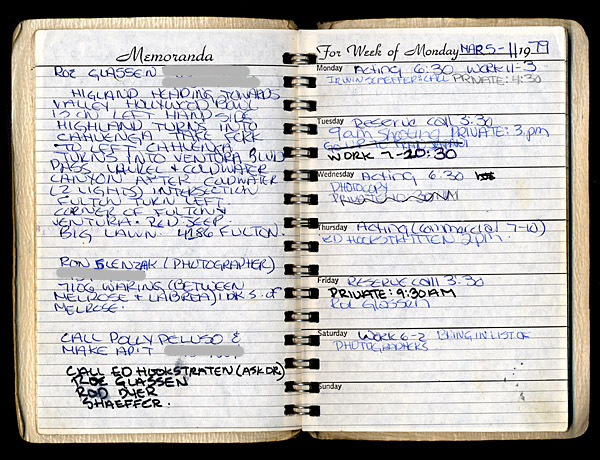 Memoranda
ROZ GLASSEN
HIGLAND HEADING TOWARDS
VALLEY HOLLYWOOD BOWL
IS ON LEFT HAND SIDE
HIGHLAND TURNS INTO
CAHUENGA TAKE FORK
TO LEFT CAHUENGA
TURNS INTO VENTURA BLVD
PASS LAUREL & COLDWATER
CANYON AFTER COLDWATER
(2 LIGHTS) INTERSECTION
FULTON TURN LEFT
CORNER OF FULTON &
VENTURA. RED JEEP.
BIG LAWN. 4186 FULTON.
RON SLENZAK (PHOTOGRAPHER)
7106 WARING (BETWEEN
MELROSE & LABREA) 1 BLK S. of
MELROSE.
CALL POLLY PELUSO &
MAKE AP'T
CALL ED HOOKSTRATEN (ASK DR)
ROZ GLASSEN
ROD DYER
SHAEFFER.
For Week of Monday MAR 5-11 1979
Monday Acting 6:30 WORK 11-3
IRWIN SCHAEFFER CALL PRIVATE: 4:30
Tuesday Reserve call 3:30
9am Shooting PRIVATE: 3pm
WORK 7-10:30
Wednesday Acting 6:30
PHOTOCOPY
Thursday Acting (commercial 7-10)
ED HOOKSTRATTEN 2pm.
Friday Reserve call 3:30
PRIVATE: 9:30AM
ROZ Glassen
Saturday WORK 6-2 BRING IN LIST OF
PHOTOGRAPHERS
Sunday